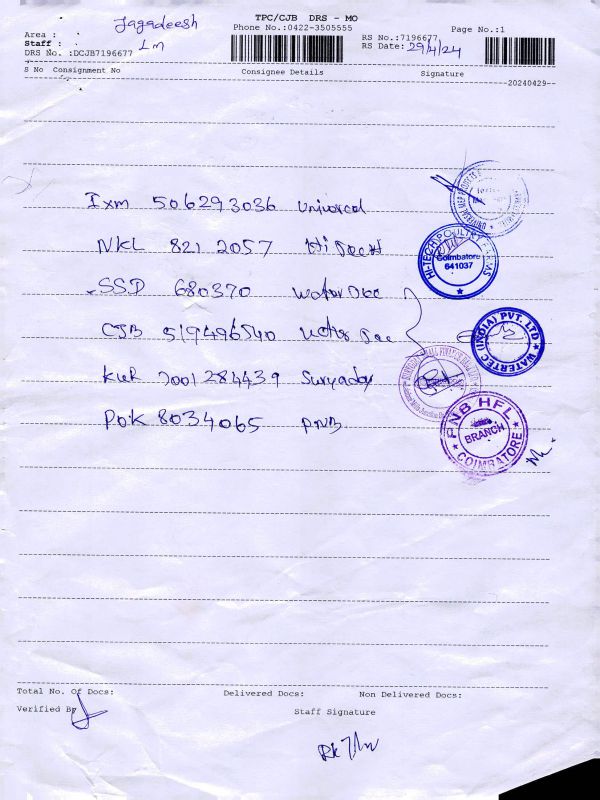 TPC/CJB DRS - MO
Jagadeesh
Phone No.:0422-3505555
Page No.:1
Area :
RS No.:7196677
Staff :
Lm
RS Date: 29/4/24
DRS No. :DCJB7196677
S No Consignment No Consignee Details Signature
20240429
Ixm 506293036 Universal
NKL 821 2057 Hi Tech
HI-TECH POULTRY FARMS
Coimbatore
641037
SSD 680370 Water Dec
CJB 519496540
WATERTEC (INDIA) PVT. LTD
KUR 7001284439 Suryaday
POK 8034065 PNB
PNB HFL
BRANCH
COIMBATORE
Total No. Of Docs: Delivered Docs: Non Delivered Docs:
Verified By
Staff Signature